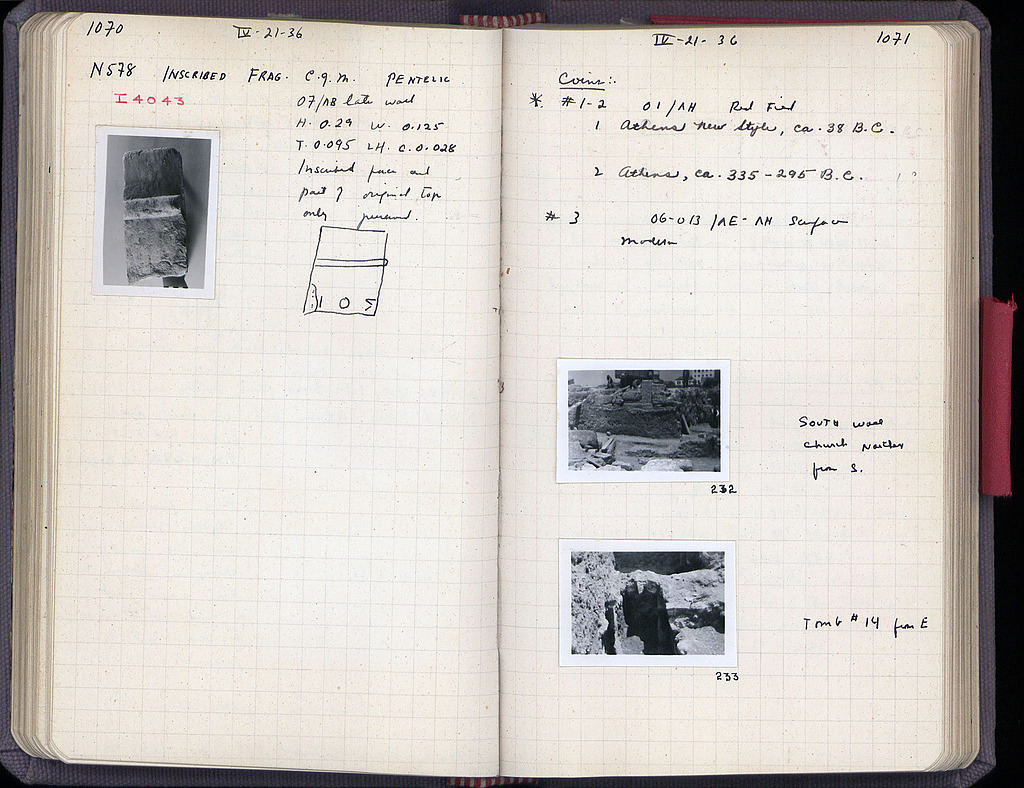 1070
IV-21-36
N578 INSCRIBED FRAG. C.g.m. PENTELIC
I 4043
07/AB late wall
H. 0.29 W. 0.125
T. 0.095 LH. c. 0.028
Inscribed face and
part of original top
only preserved.
I O Σ
IV-21-36
1071
Coins:
* #1-2 01/AH Red Fill
1 Athens New Style, ca. 38 B.C.
2 Athens, ca. 335-295 B.C.
# 3 06-013/AE-AH Surface
modern
South wall
Church Narthex
from S.
232
Tomb #14 from E
233